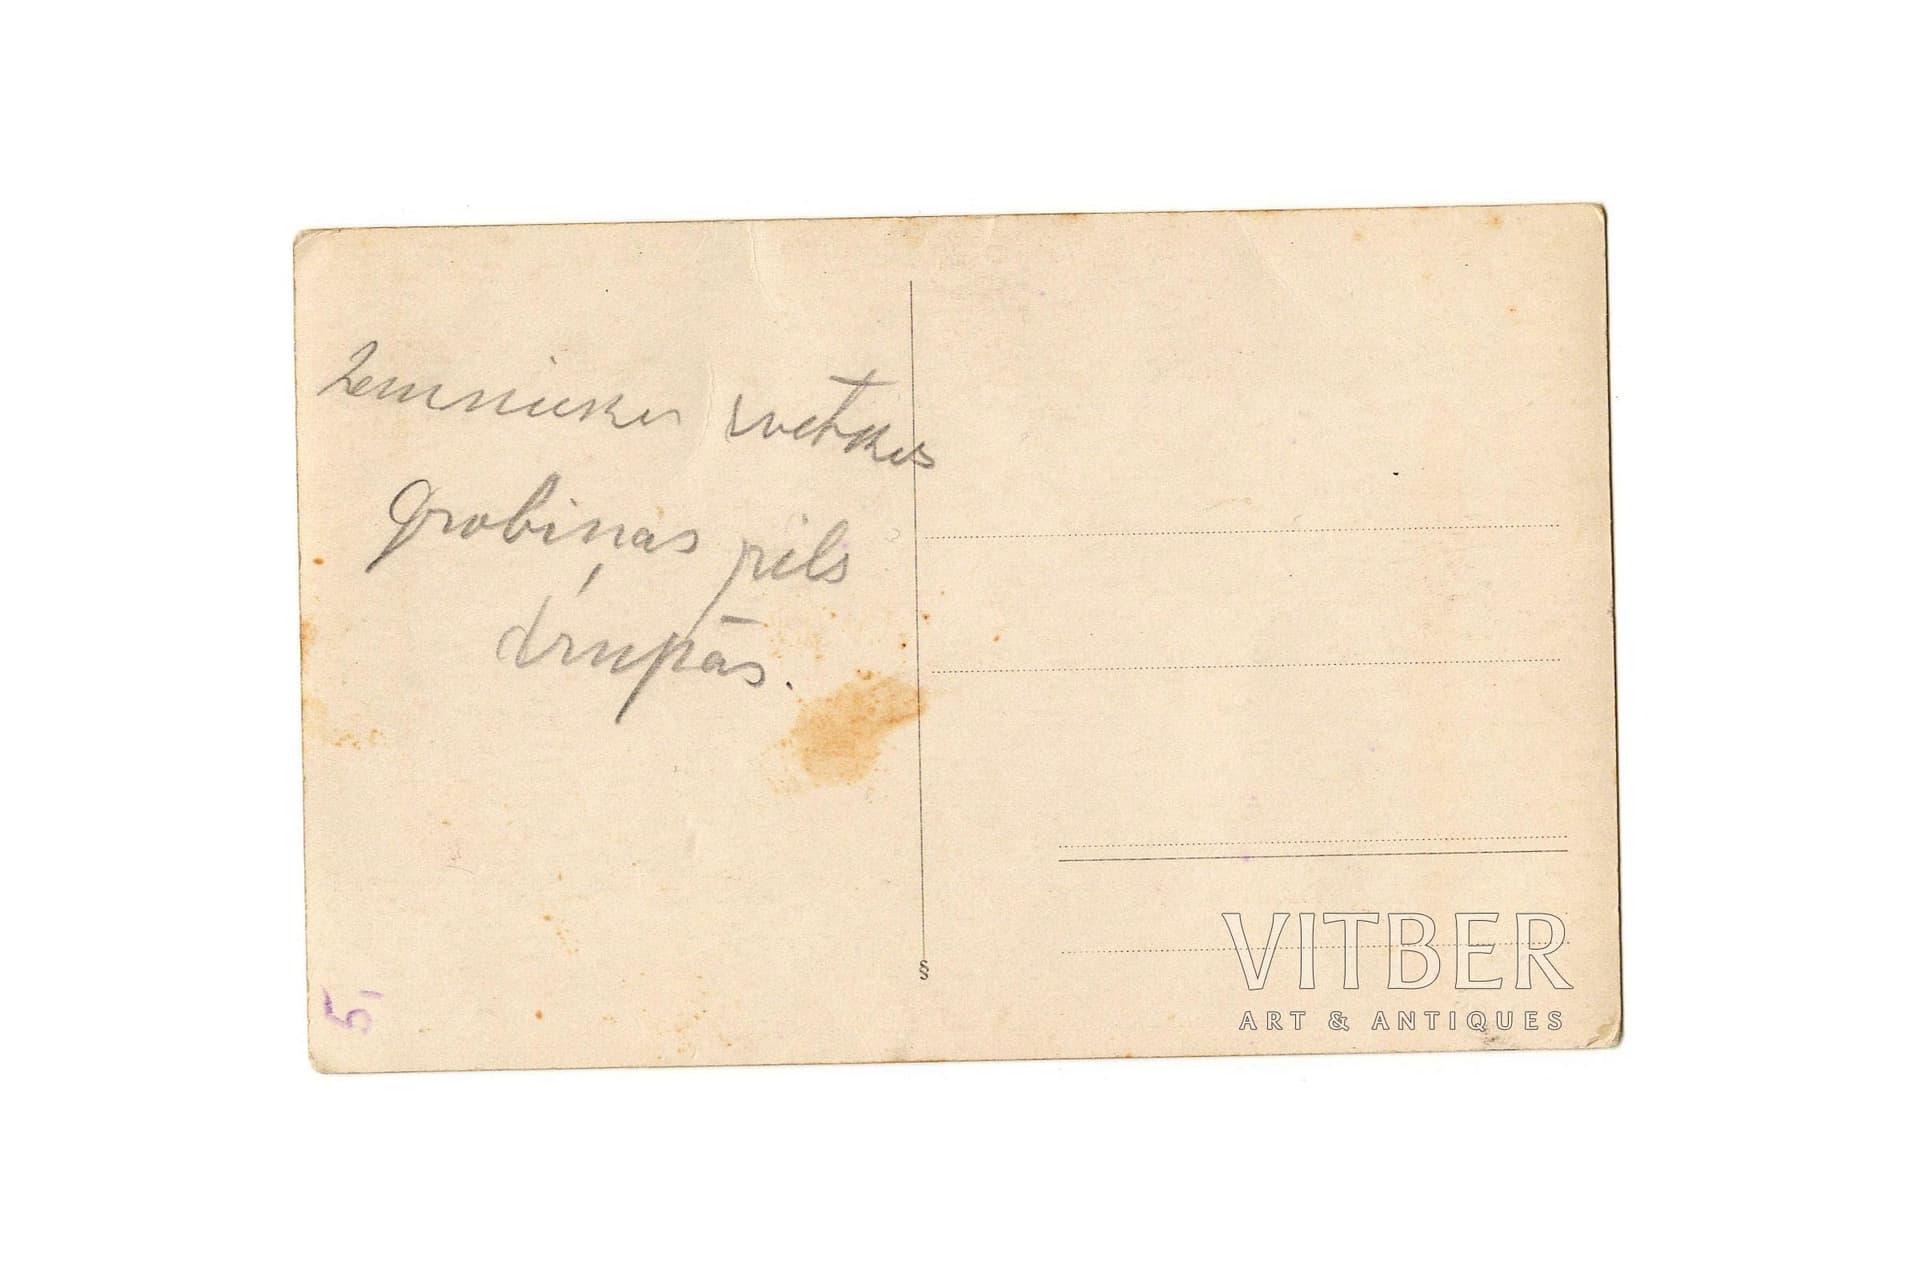 zemnieku svētkis
Grobiņas pils
drupās.
§
5,
VITBER
ART & ANTIQUES